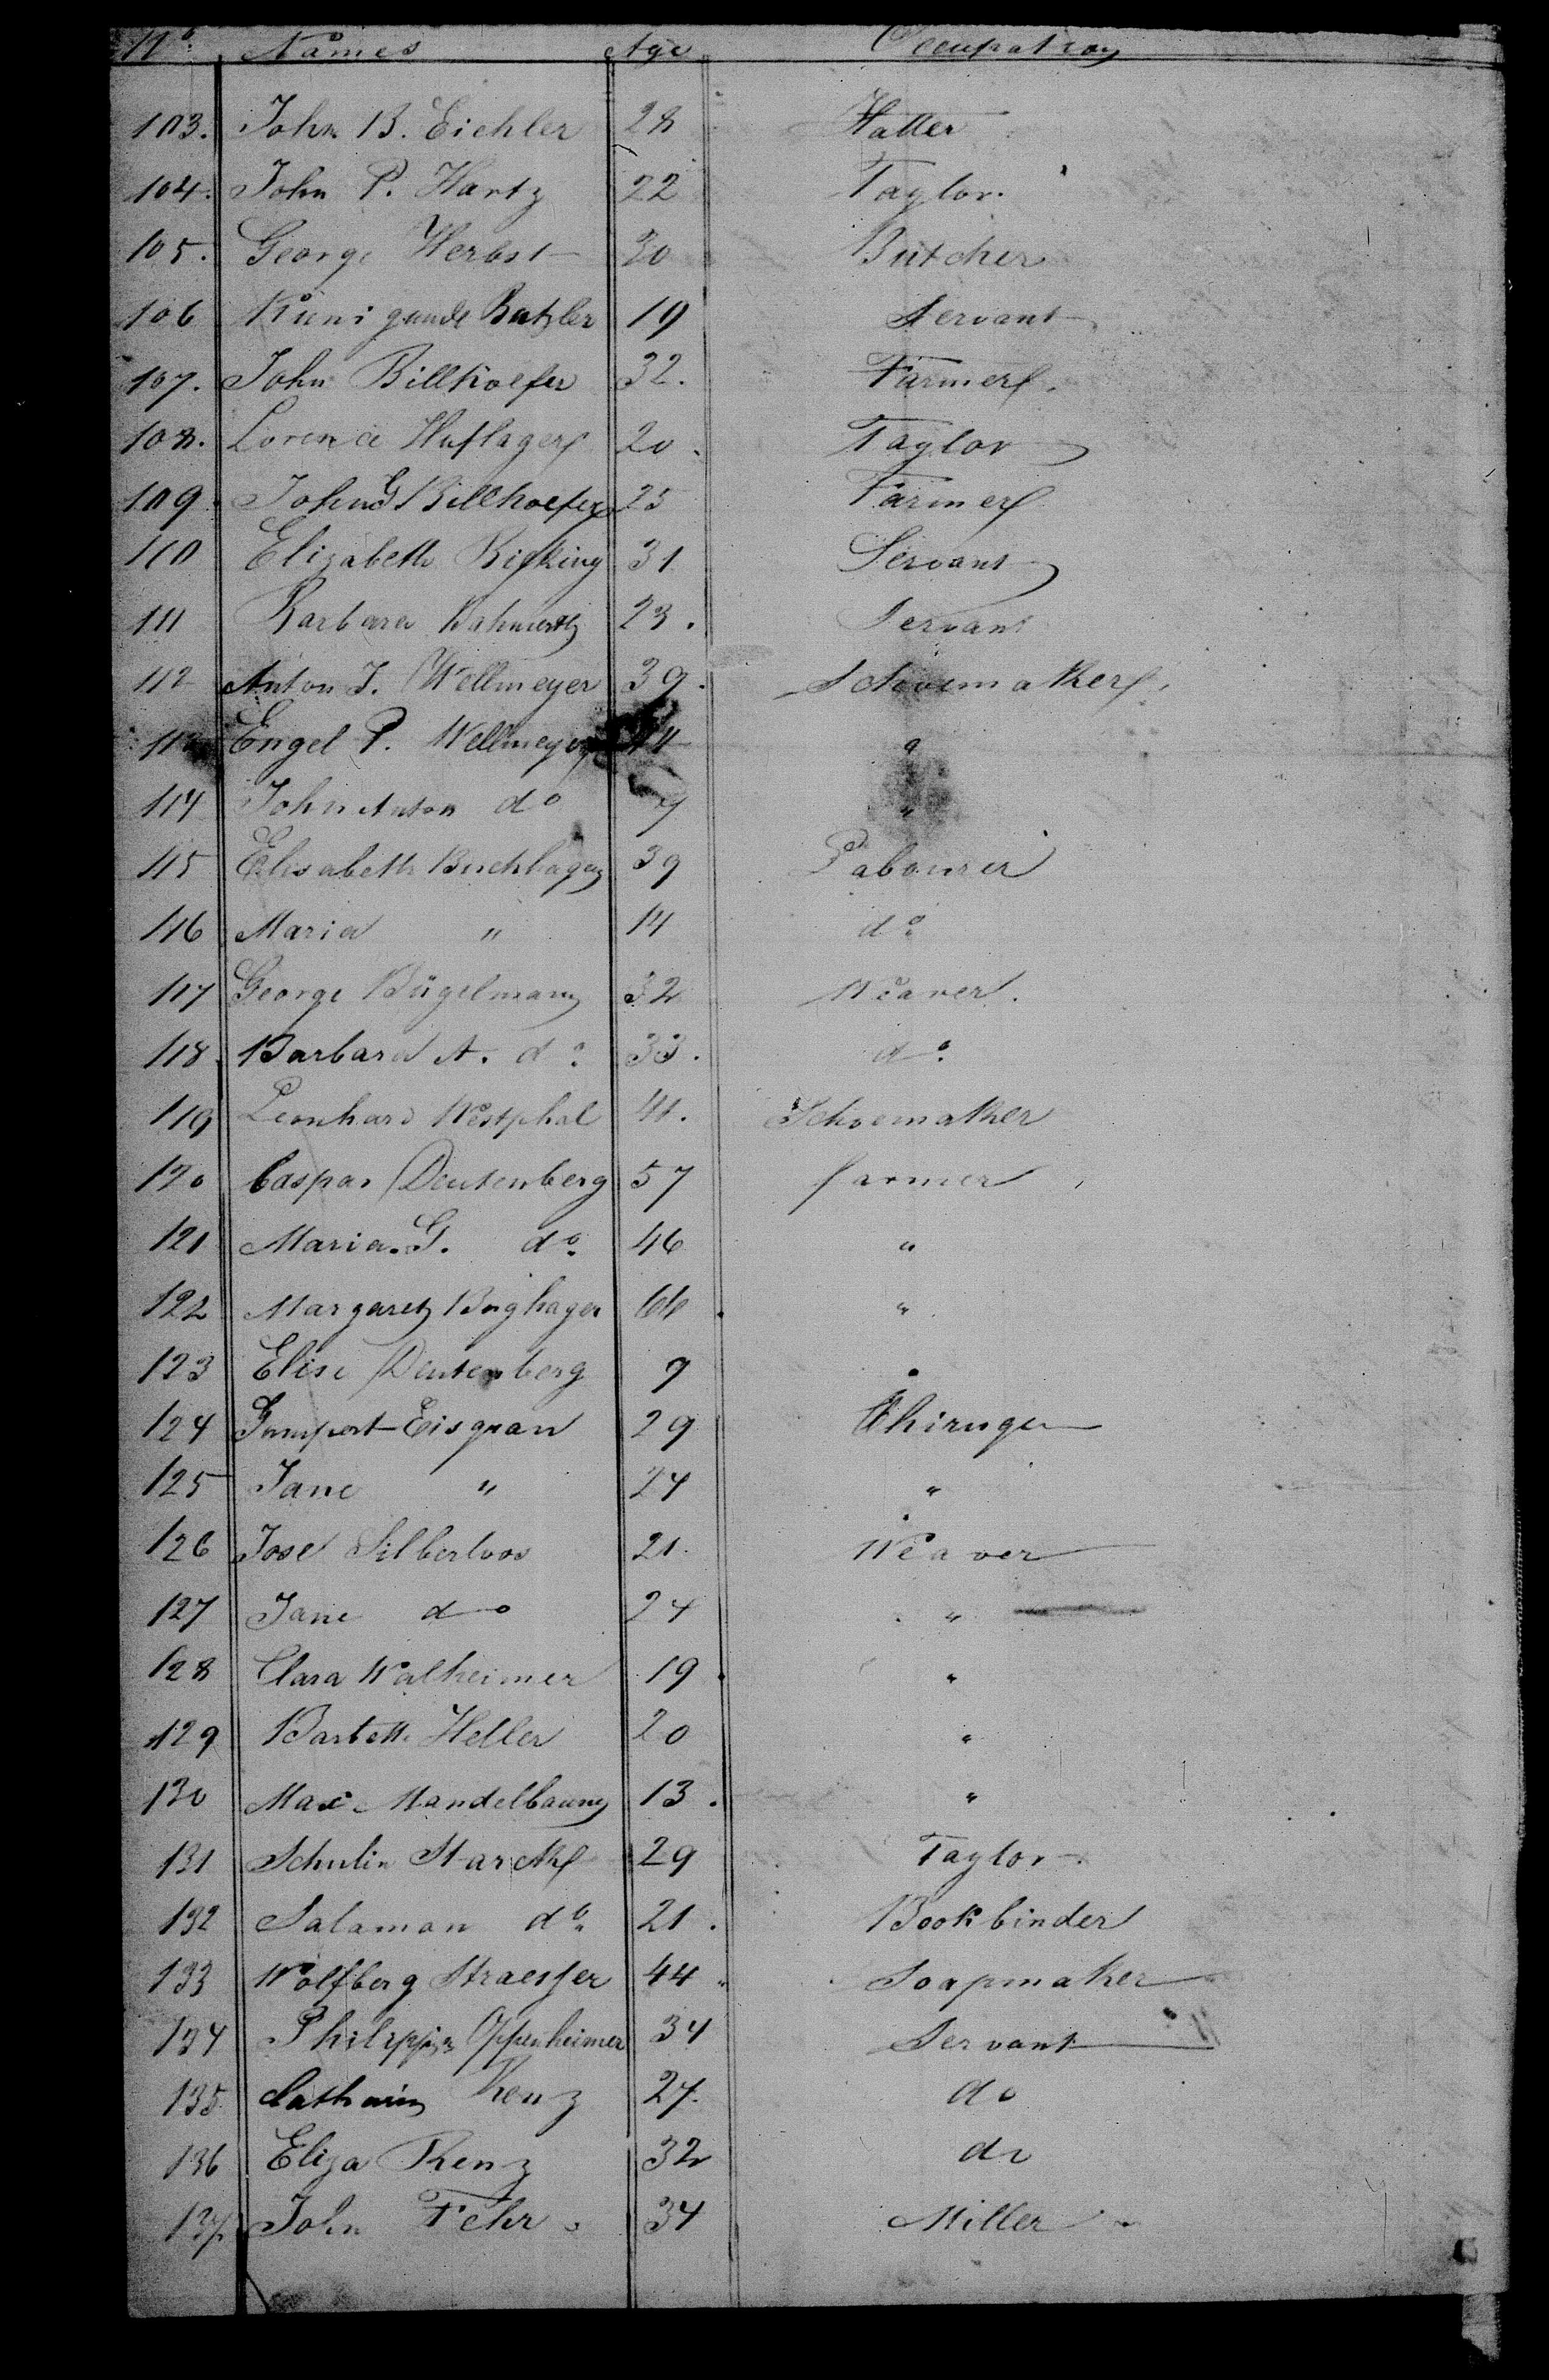 No. Names Age Occupation
103. John B. Eichler 28 Hatter
104. John P. Hartz 22 Taylor.
105. George Herbst 30 Butcher
106 Kunigunde Batzler 19 Servant
107. John Billhoefer 32. Farmer.
108. Lorence Huflager 20. Taylor
109. John G Billhoefer 25 Farmer
110 Elizabeth 31 Servant
111 Barbara 23. Servant
112 Anton J. Wellmeyer 39. Schoemaker.
113 Engel P. Wellmeyer "
114 John Anton do 9 "
115 Elisabeth Buchhagen 39 Labourer
116 Maria " 14 do
117 George Bügelmann 32 Weaver.
118. Barbara A. do. 33. do.
119 Leonhard Westphal 41. Schoemaker
120 Caspar Deutenberg 57 farmer
121 Maria. G. do. 46 "
122 Margareth Berghagen 66. "
123 Elise Deutenberg 9 "
124 Gumpert Eisgrau 29 Chirurge
125 Jane " 24 "
126 Josel Silberloos 21. Weaver
127 Jane do 24 "
128 Clara Walheimer 19. "
129 Barbette Heller 20 "
130 Max Mandelbaum 13. "
131 Schulin Starck 29 Taylor.
132 Salamon do. 21. Bookbinder
133 Wolfberg Straesser 44 Soapmaker
134 Philippin Oppenheimer 34 Servant
135. Catharin Renz 27. do
136 Eliza Renz 32 do
137. John Fehr 34 Miller